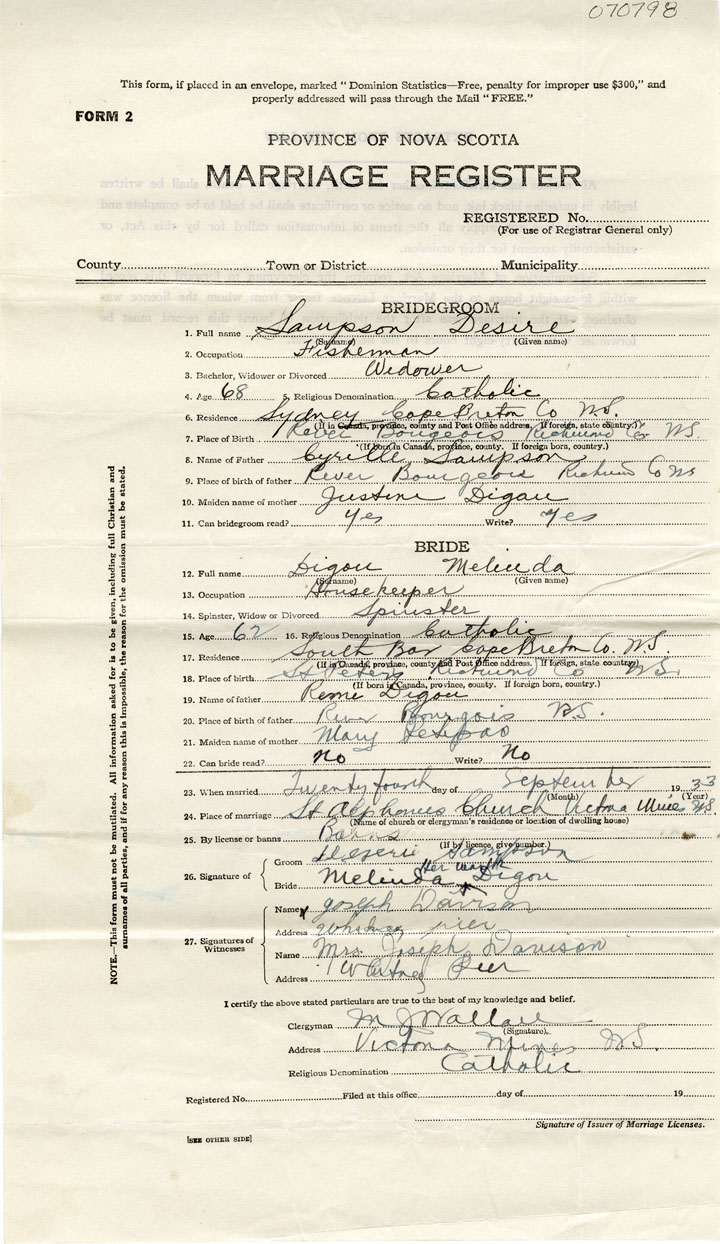 070798
This form, if placed in an envelope, marked " Dominion Statistics—Free, penalty for improper use $300," and
properly addressed will pass through the Mail " FREE."
FORM 2
PROVINCE OF NOVA SCOTIA
MARRIAGE REGISTER
REGISTERED No.
(For use of Registrar General only)
County Town or District Municipality
BRIDEGROOM
1. Full name Sampson Desire
(Surname) (Given name)
2. Occupation Fisherman
3. Bachelor, Widower or Divorced Widower
4. Age 68 5. Religious Denomination Catholic
6. Residence Sydney Cape Breton Co N.S.
(If in Canada, province, county and Post Office address. If foreign, state country.)
7. Place of Birth River Bourgeois Richmond Co N.S.
(If born in Canada, province, county. If foreign born, country.)
8. Name of Father Cyrille Sampson
9. Place of birth of father River Bourgeois Richmond Co N.S.
10. Maiden name of mother Justine Digou
11. Can bridegroom read? Yes Write? Yes
BRIDE
12. Full name Digou Melinda
(Surname) (Given name)
13. Occupation Housekeeper
14. Spinster, Widow or Divorced Spinster
15. Age 62 16. Religious Denomination Catholic
17. Residence South Bar Cape Breton Co. N.S.
(If in Canada, province, county and Post Office address. If foreign, state country)
18. Place of birth St Peters Richmond Co N.S.
(If born in Canada, province, county. If foreign born, country.)
19. Name of father Reme Digou
20. Place of birth of father River Bourgois N.S.
21. Maiden name of mother Mary
22. Can bride read? No Write? No
23. When married Twenty fourth day of September 1933
(Month) (Year)
24. Place of marriage St Alphonsus Church Victoria Mines N.S.
(Name of church or clergyman's residence or location of dwelling house)
25. By license or banns Banns
(If by licence, give number.)
26. Signature of
Groom Sampson
her mark
Bride Melinda X Digou
27. Signatures of Witnesses
Name Joseph Davison
Address Whitney Pier
Name Mrs. Joseph Davison
Address Whitney Pier
I certify the above stated particulars are true to the best of my knowledge and belief.
Clergyman M J Wallace
(Signature)
Address Victoria Mines N.S.
Religious Denomination Catholic
Registered No. Filed at this office day of 19
Signature of Issuer of Marriage Licenses.
[SEE OTHER SIDE]
NOTE.—This form must not be mutilated. All information asked for is to be given, including full Christian and
surnames of all parties, and if for any reason this is impossible, the reason for the omission must be stated.